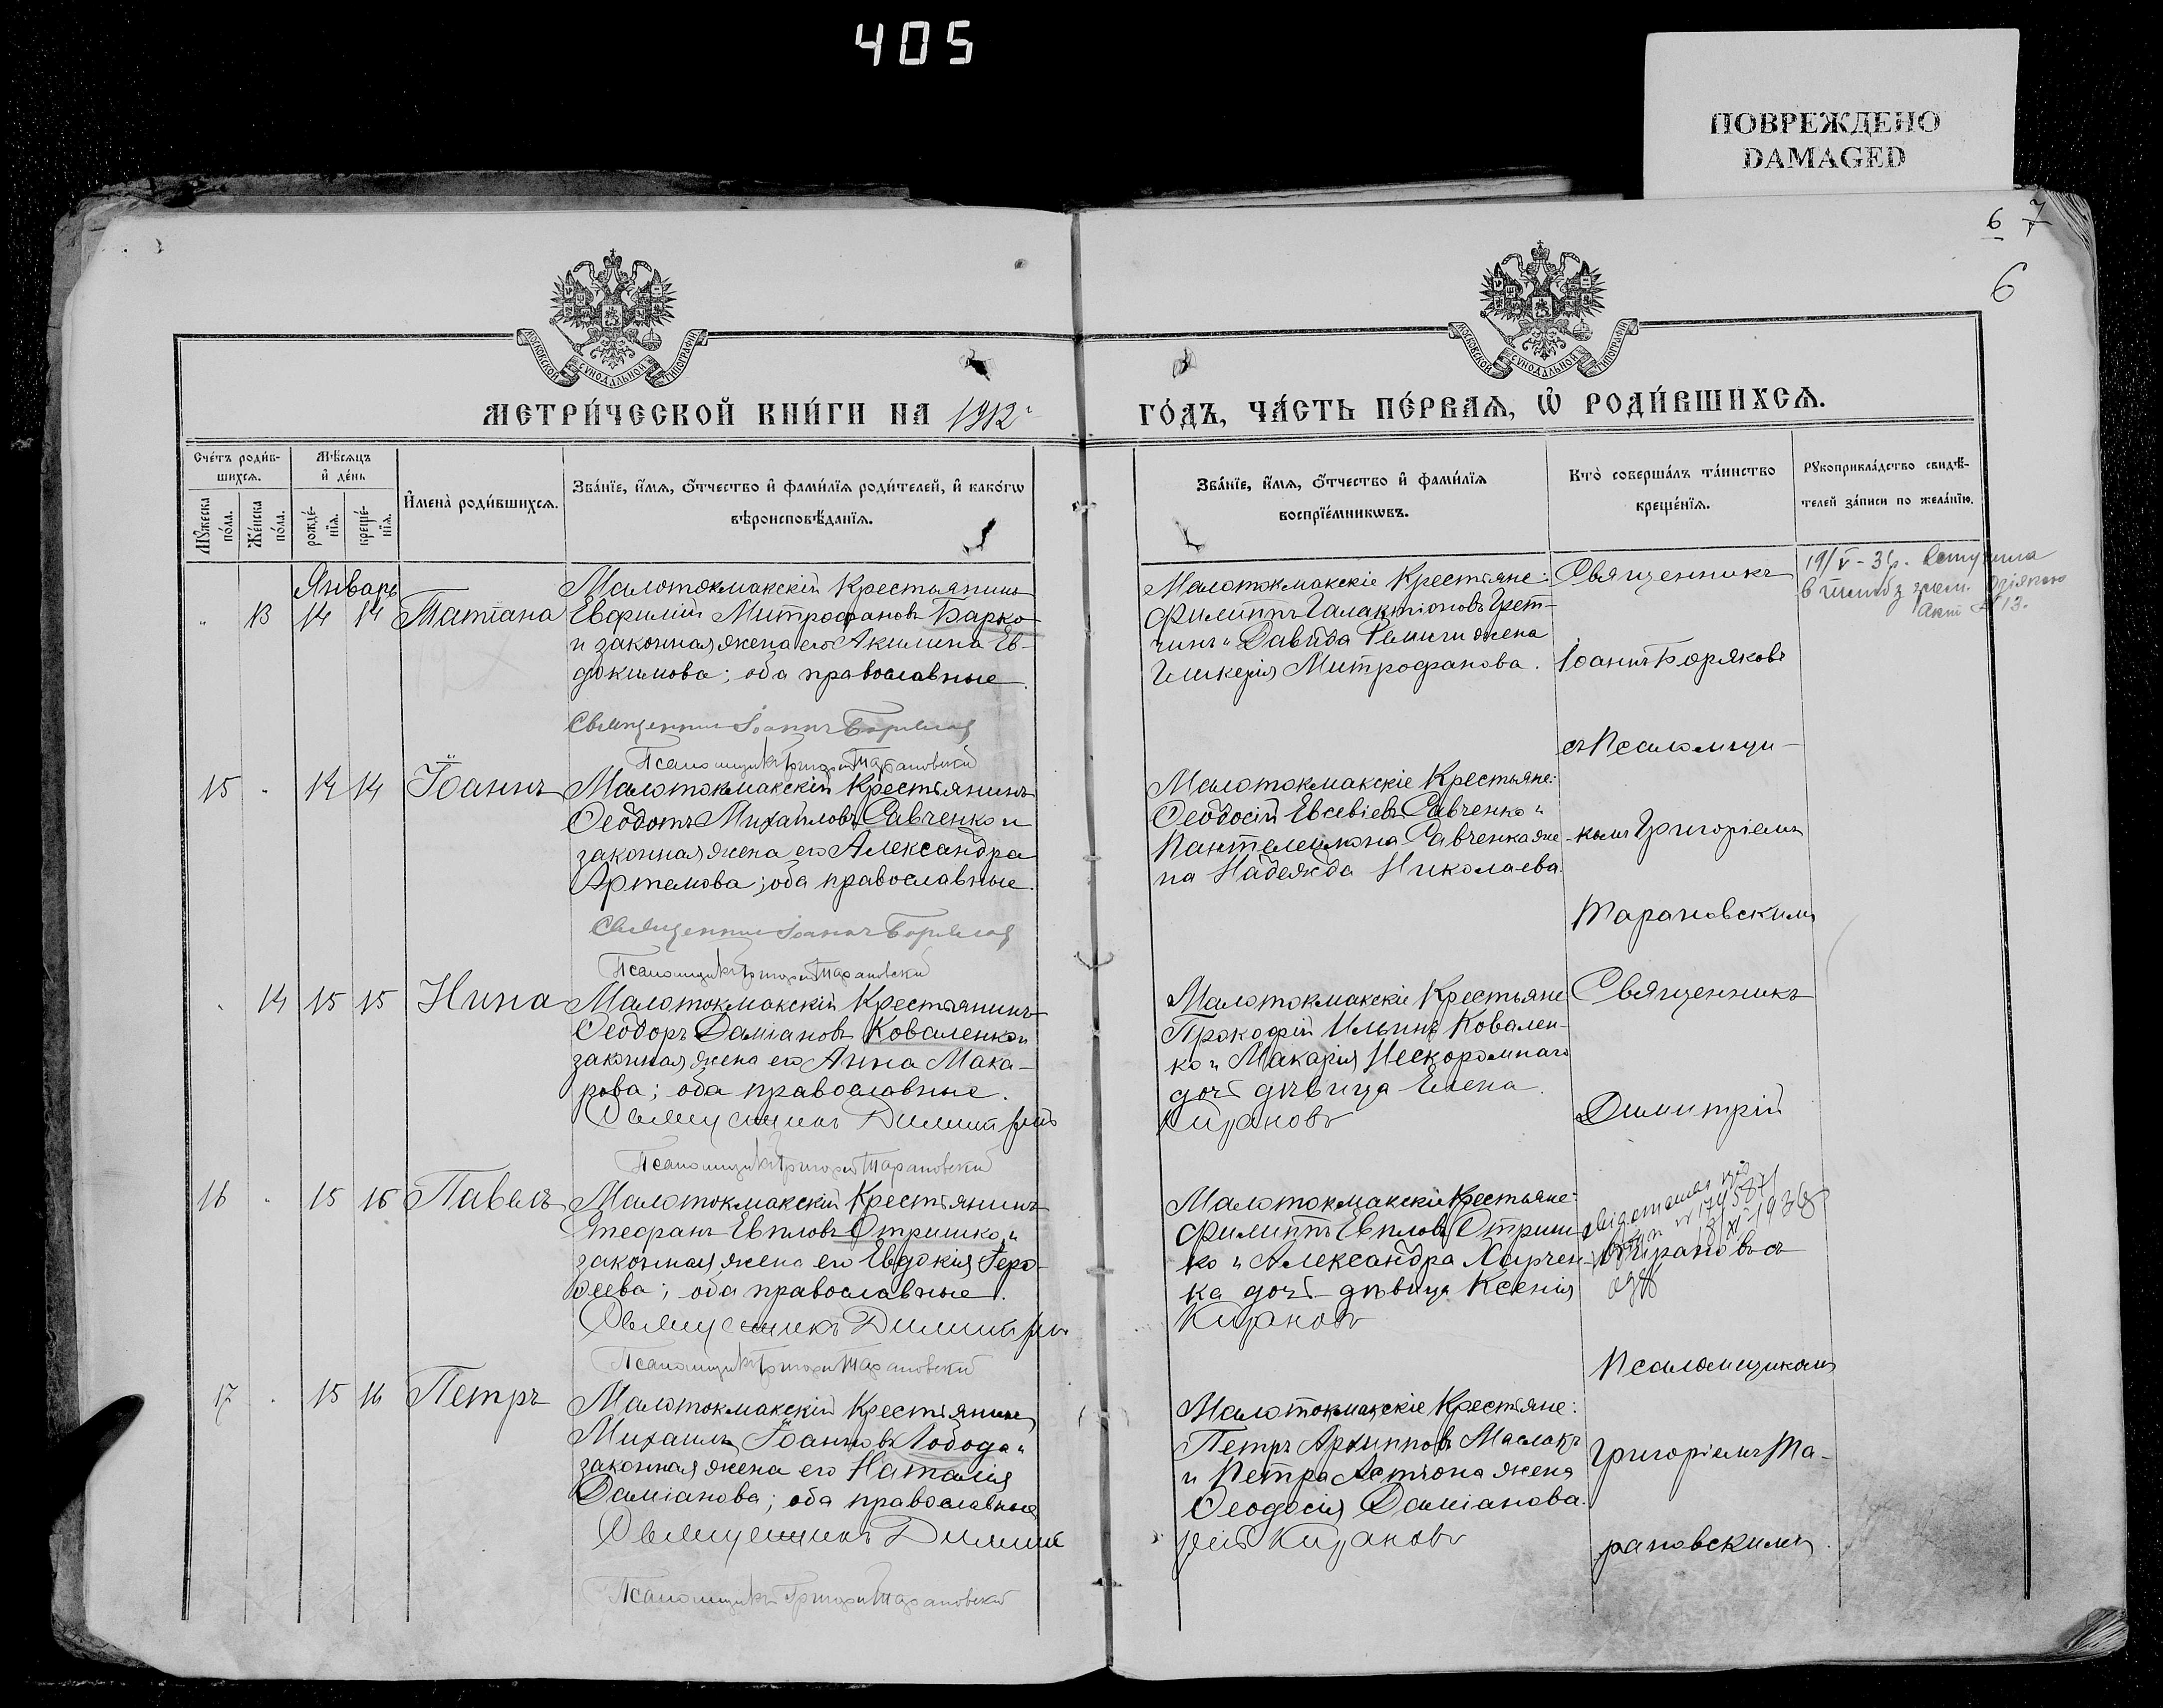 405
ПОВРЕЖДЕНО
DAMAGED
6 7
6
МОСКОВСКОЙ СѴНОДАЛЬНОЙ ТИПОГРАФІИ
МОСКОВСКОЙ СѴНОДАЛЬНОЙ ТИПОГРАФІИ
МЕТРИ́ЧЕСКОЙ КНИ́ГИ НА 1912
ГО́ДЪ, ЧА́СТЬ ПЕ́РВАѦ, Ѡ҆ РОДИ́ВШИХСѦ.
Сче́тъ роди́в-
шихсѧ.
Мꙋжеска по́ла.
Же́нска по́ла.
Мѣ́сѧцъ
и҆ де́нь
рожде́-
нїѧ.
креще́-
нїѧ.
И҆мена̀ роди́вшихсѧ.
Зва́нїе, и҆́мѧ, ѻ҆́тчество и҆ фами́лїѧ роди́телей, и҆ како́гѡ
вѣроисповѣ́данїѧ.
Зва́нїе, и҆́мѧ, ѻ҆́тчество и҆ фами́лїѧ
воспрїе́мникѡвъ.
Кто̀ соверша́лъ та́инство
креще́нїѧ.
Рꙋкоприкла́дство свидѣ́-
телей за́писи по жела́нїю.
Январь
" 13 14 14 Татіана
Малотокмакскій Крестьянинъ
Евфимій Митрофановъ Барко
и законная жена его Акилина Ев-
докимова; оба православные.
Священникъ Іоаннъ Боряковъ
Псаломщикъ Григорій Тарановскій
Малотокмакскіе Крестьяне:
Филиппъ Галактіоновъ Грет-
чинъ и Давида жена
Гликерія Митрофанова.
Священникъ
Іоаннъ Боряковъ
съ Псаломщи-
19/V-3 г.
Акт № 13.
15 " 14 14 Іоаннъ
Малотокмакскій Крестьянинъ
Ѳеодотъ Михайловъ Савченко и
законная жена его Александра
Артемова; оба православные.
Священникъ Іоаннъ Боряковъ
Псаломщикъ Григорій Тарановскій
Малотокмакскіе Крестьяне:
Ѳеодосій Евсевіевъ Савченко и
Пантелеимона Савченка же-
на Надежда Николаева.
комъ Григоріемъ
Тарановскимъ
" 14 15 15 Нина
Малотокмакскій Крестьянинъ
Ѳеодоръ Даміановъ Коваленко и
законная жена его Анна Мака-
рова; оба православные.
Священникъ Димитрій
Псаломщикъ Григорій Тарановскій
Малотокмакскіе Крестьяне
Прокофій Ильинъ Ковален-
ко и Макарія Нескоромнаго
дочь дѣвица Елена.
Кирановъ
Священникъ
Димитрій
16 " 15 16 Павелъ
Малотокмакскій Крестьянинъ
Стефанъ Евпловъ Отришко и
законная жена его Евдокія
оба православные.
Священникъ Димитрій
Псаломщикъ Григорій Тарановскій
Малотокмакскіе Крестьяне:
Филиппъ Евпловъ Отриш-
ко и Александра Харчен-
ка дочь дѣвица Ксенія
Кирановъ
Кирановъ съ
Псаломщикомъ
17 " 15 16 Петръ
Малотокмакскій Крестьянинъ
Михаилъ Іоанновъ Лобода и
законная жена его Наталія
Даміанова; оба православные
Священникъ Димит
Псаломщикъ Григорій Тарановскій
Малотокмакскіе Крестьяне:
Петръ Архипповъ Маслакъ
и Петра жена
Ѳеодосія Даміанова.
рій Кирановъ
Григоріемъ Та-
рановскимъ.